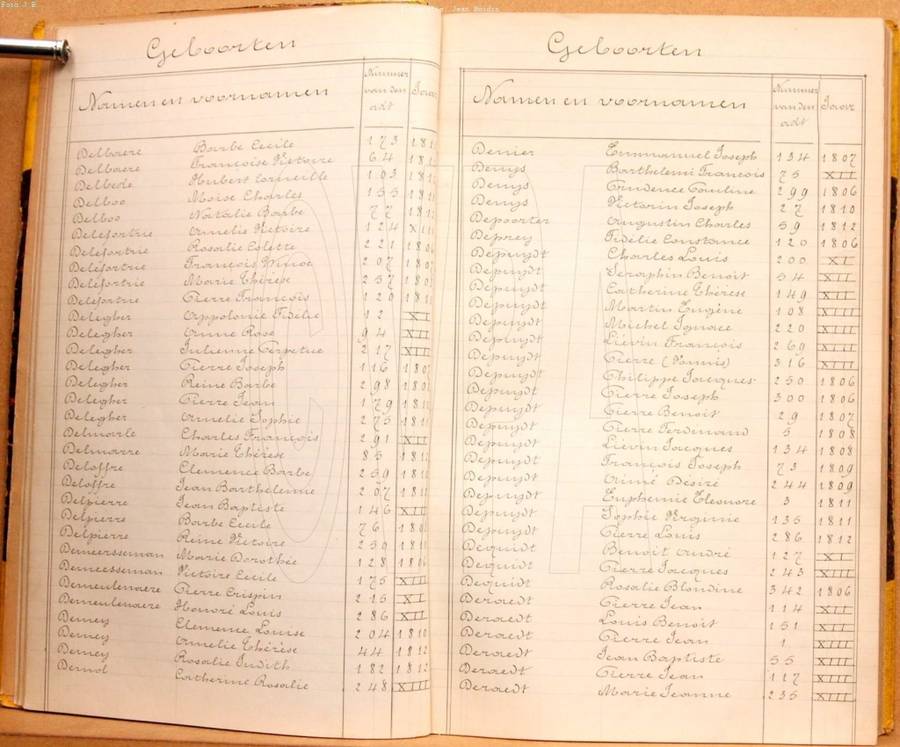 Foto J.E.
Jean Boidin
Geboorten
Namen en voornamen Nummer van den adt Jaar
Delbaere Barbe Cecile 173
Delbaere Françoise Victoire 64
Delbecle Hubert Corneille 193
Delboo Moïse Charles 155
Delboo Natalie Barbe 77
Delefortrie Amelie Victoire 124
Delefortrie Rosalie Colette 221
Delefortrie François 207
Delefortrie Marie Thérèse 257
Delefortrie Pierre François 129
Delegher Appolonie Fidelie 12 XII
Delegher Anne Rose 94 XII
Delegher Julienne Perpetue 217 XIII
Delegher Pierre Joseph 116
Delegher Reine Barbe 298
Delegher Pierre Jean 179
Delegher Amelie Sophie 275
Delmaele Charles François 291 XII
Delmarre Marie Thérèse 85
Deloffre Clemence Barbe 259
Deloffre Jean Barthelemie 207
Delpierre Jean Baptiste 146 XII
Delpierre Barbe Cecile 76
Delpierre Reine Victoire 259
Demeersseman Marie Dorothée 128 1806
Demeersseman Victoire Cecile 175 XIII
Demeulenaere Pierre Crispin 215 XI
Demeulenaere Honoré Louis 286 XII
Demey Clemence Louise 204 1810
Demey Amelie Thérèse 44 1812
Demey Rosalie Judith 182 1812
Demol Catherine Rosalie 248 XIII
Geboorten
Namen en voornamen Nummer van den adt Jaar
Denier Emmanuel Joseph 134 1807
Denys Barthelemi François 75 XII
Denys Prudence Pauline 299 1806
Denys Victorin Joseph 27 1810
Depoorter Augustin Charles 59 1812
Deprey Fidélie Constance 120 1806
Depuydt Charles Louis 200 XI
Depuydt Seraphin Benoit 54 XII
Depuydt Catherine Thérèse 149 XII
Depuydt Martin Eugène 108 XIII
Depuydt Michel Ignace 220 XIII
Depuydt Lievin François 269 XIII
Depuydt Pierre 316 XIII
Depuydt Philippe Jacques 250 1806
Depuydt Pierre Joseph 300 1806
Depuydt Pierre Benoit 29 1807
Depuydt Pierre Ferdinand 5 1808
Depuydt Lievin Jacques 134 1808
Depuydt François Joseph 73 1809
Depuydt Aimé Desiré 244 1809
Depuydt Euphemie Eleonore 3 1811
Depuydt Sophie Virginie 135 1811
Depuydt Pierre Louis 286 1812
Dequidt Benoit André 127 XI
Dequidt Pierre Jacques 243 XIII
Dequidt Rosalie Blondine 342 1806
Deraedt Pierre Jean 114 XII
Deraedt Louis Benoit 151 XII
Deraedt Pierre Jean 1 XIII
Deraedt Jean Baptiste 55 XIII
Deraedt Pierre Jean 127 XIII
Deraedt Marie Jeanne 235 XIII